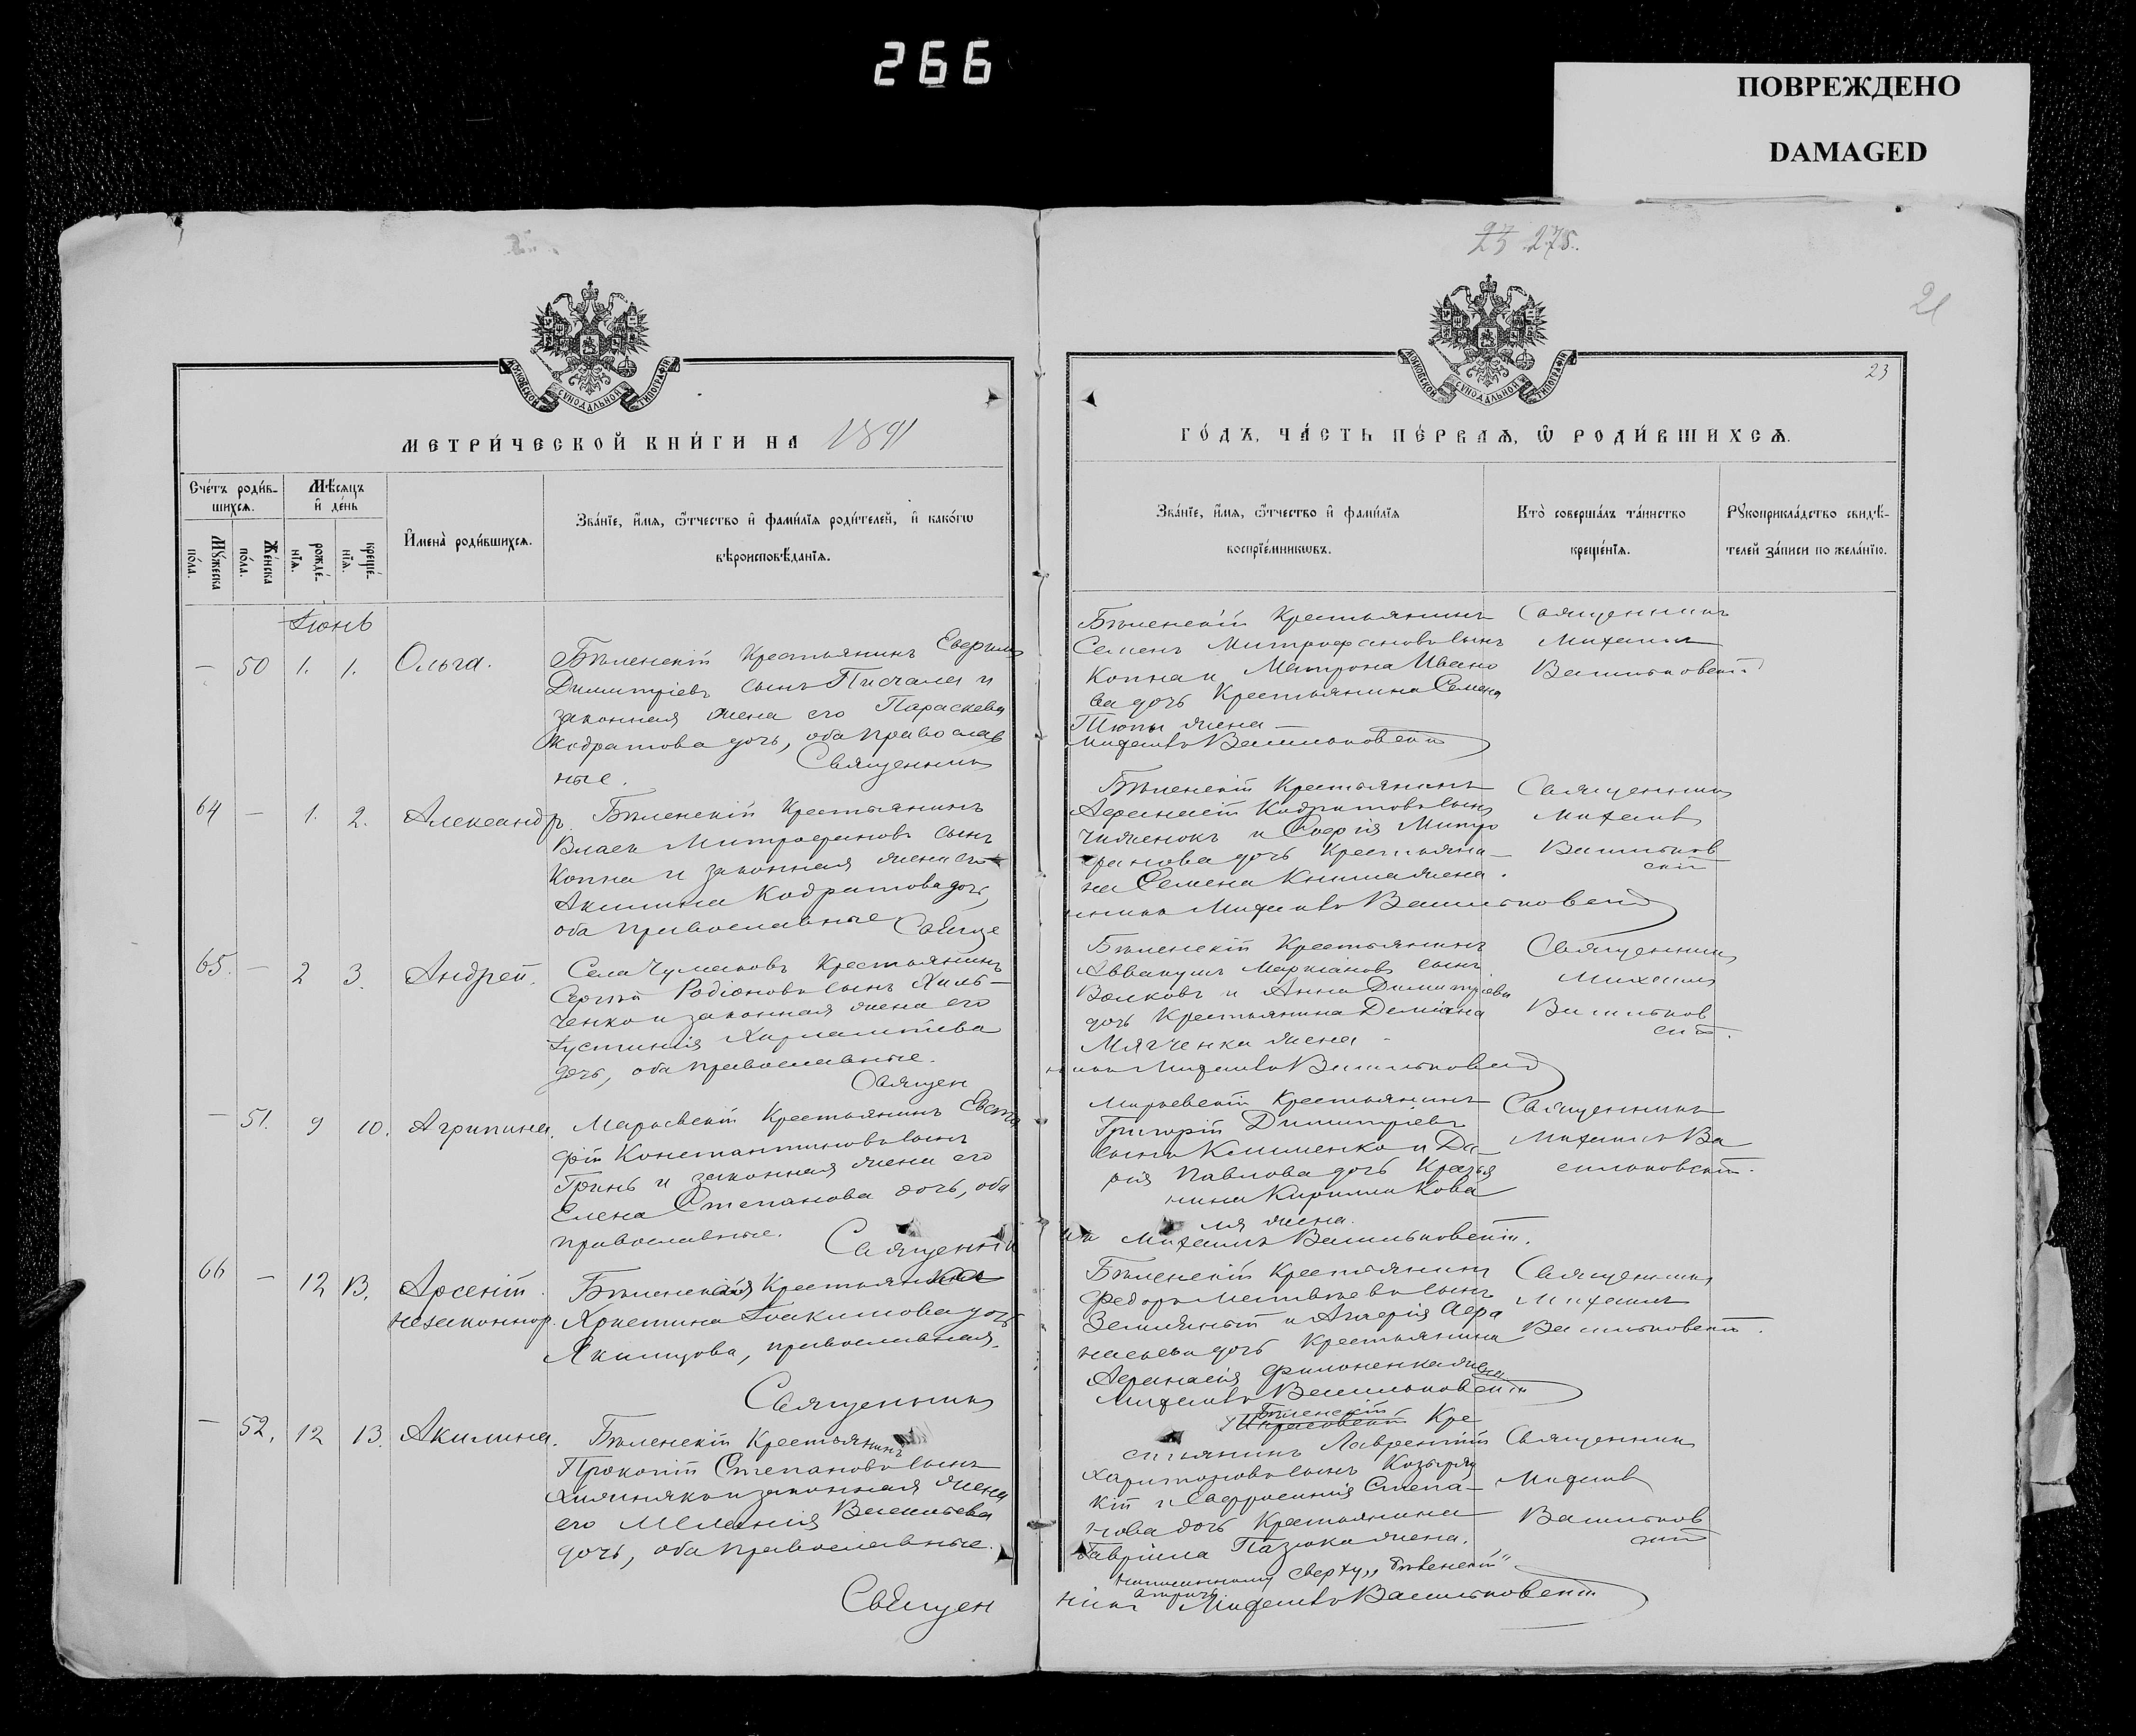 266
ПОВРЕЖДЕНО
DAMAGED
23 275.
21
23
МОСКОВСКОЙ СѴНОДАЛЬНОЙ ТИПОГРАФІИ
МОСКОВСКОЙ СѴНОДАЛЬНОЙ ТИПОГРАФІИ
МЕТРИ́ЧЕСКОЙ КНИ́ГИ НА 1891
ГО́ДЪ, ЧА́СТЬ ПЕ́РВАѦ, Ѿ РОДИ́ВШИХСѦ.
Сче́тъ роди́в-
шихсѧ.
Мꙋ́жеска
по́ла.
Же́нска
по́ла.
Мѣ́сяцъ
и҆ де́нь
рожде́-
нїѧ.
креще́-
нїѧ.
И҆мена̀ роди́вшихсѧ.
Зва́нїе, и҆́мѧ, ѻ҆́тчество и҆ фамилїѧ роди́телей, и҆ како́гѡ
вѣроисповѣ́данїѧ.
Зва́нїе, и҆́мѧ, ѻ҆́тчество и҆ фамилїѧ
воспрїе́мникѡвъ.
Кто̀ соверша́лъ та́инство
креще́нїѧ.
Рꙋкоприкла́дство свидѣ́-
телей за́писи по жела́нїю.
Іюнь
— 50 1. 1. Ольга.
Бѣленскій Крестьянинъ
Димитріевъ сынъ Писчала и
законная жена его Параскева
Кодратова дочь, оба православ
ные. Священникъ
Бѣленскій Крестьянинъ
Семенъ Митрофановъ сынъ
Копна и Матрона Ивано
ва дочь Крестьянина Семена
Тюпы жена —
Михаилъ Васильковскій
Священникъ
Михаилъ
Васильковскій
64 — 1. 2. Александръ.
Бѣленскій Крестьянинъ
Власъ Митрофановъ сынъ
Копна и законная жена его
Акилина Кодратова дочь,
оба православные Свяще
Бѣленскій Крестьянинъ
Афанасій Кодратовъ сынъ
и Софія Митро
фанова дочь Крестьяни—
на Семена жена.
нникъ Михаилъ Васильковскій
Священникъ
Михаилъ
Васильков
скій
65. — 2 3. Андрей.
Села Чумаковъ Крестьянинъ
Сергій Родіоновъ сынъ Хиль—
ченко и законная жена его
Іустинія Харлампіева
дочь, оба православные.
Священ
Бѣленскій Крестьянинъ
Аввакумъ Маркіановъ сынъ
Волковъ и Анна Димитріева
дочь Крестьянина Деміана
Мягченка жена —
никъ Михаилъ Васильковскій
Священникъ
Михаилъ
Васильков
скій.
— 51. 9 10. Агрипина.
Марьевскій Крестьянинъ Евста
фій Константиновъ сынъ
Гринь и законная жена его
Елена Степанова дочь, оба
православные. Священни
Марьевскій Крестьянинъ
Григорій Димитріевъ
сынъ Клименко и Да—
рія Павлова дочь Крестья
нина Кирилла Кова
ля жена.
къ Михаилъ Васильковскій.
Священникъ
Михаилъ Ва
сильковскій.
66 — 12 13. Арсеній.
незаконнор.
Бѣленская Крестьянка
Христина Іоакимова дочь
Якимцова, православная.
Священникъ
Бѣленскій Крестьянинъ
Федоръ Матвѣевъ сынъ
Земляный и Агафія Афа
насьева дочь Крестьянина
Афанасія Филоненка жена
Михаилъ Васильковскій
Священникъ
Михаилъ
Васильковскій.
— 52. 12 13. Акилина.
Бѣленскій Крестьянинъ
Прокопій Степановъ сынъ
и законная жена
его Меланія Васильева
дочь, оба православные.
Священ
Бѣленскій
Кре
стьянинъ Лаврентій
Харитоновъ сынъ Козыряц
кій и Евфросинія Степа—
нова дочь Крестьянина
Гавріила Пазюка жена.
Написанному сверху „Бѣленскій“
вѣрить.
никъ Михаилъ Васильковскій
Священникъ
Михаилъ
Васильков
скій